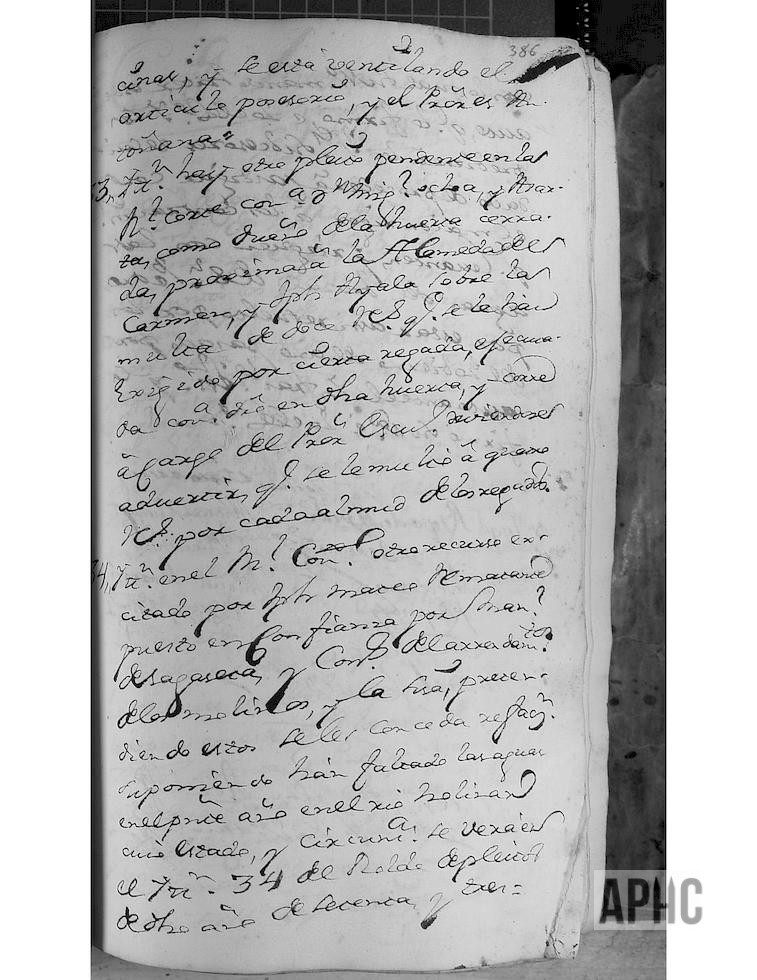 386
cinas, y se está ventilando el
articulo posesorio, y el Pror es An
toñana
33, Yttn. hay otro pleito pendente en las
Rl. corte con Dn Mig.l ochoa, y Azar
ta, como dueño de la huerta cerra
da, proxima a la Alameda del
Carmen, y Jph Ayala sobre la
multa de doce Rs. q.e se le han
exigido por cierta regada, efecua
da con dio en dha huerta, y corre
à Cargo del Pror
advertir, q.e se le multò à quatro
Rs. por cada almud de los regados.
34, Yttn. en el Rl. Con.o otro recurso ex
citado por Jph mateo
puesto en Confianza por Man.l
de sagaseta, y Cons. del arrendam.to
de los molinos, y la suia, preten
diendo estos se les conceda refacn.
suponiendo hán faltado las aguas
en el pnte año en el rio molinar
cuio estado, y circuns. se verá en
el Yttn. 34 del Rolde de pleitos
de dho año de setenta, y tres=
APHC